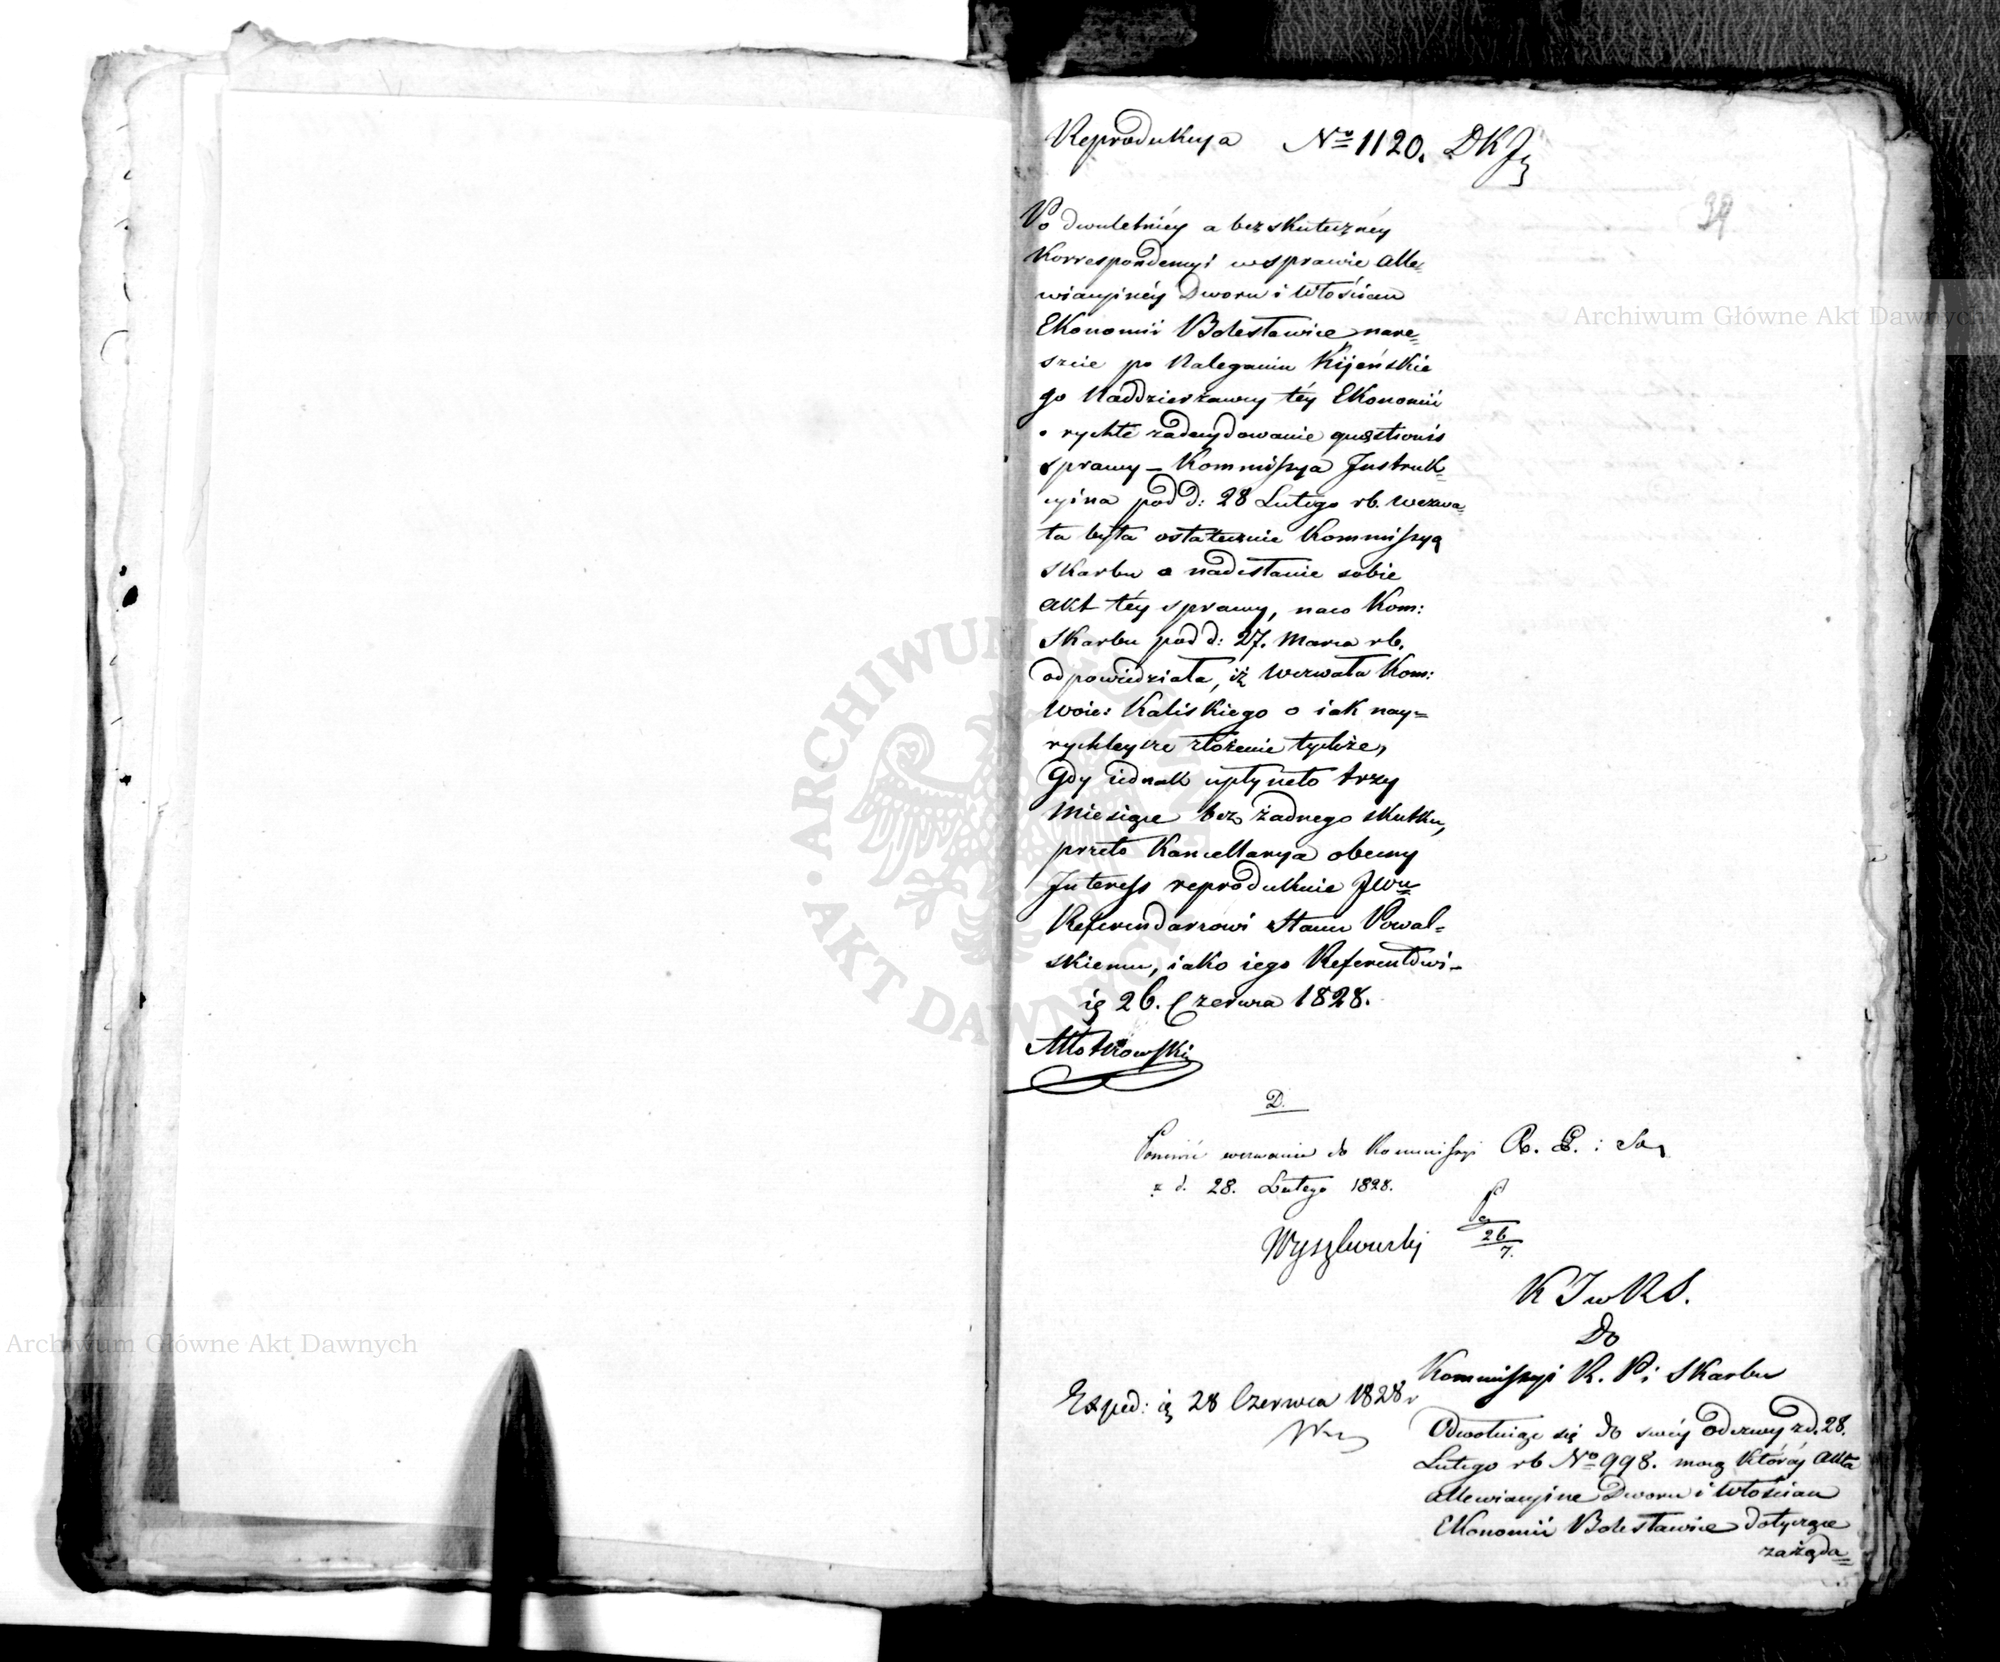 Reprodukcya No 1120. DKJ
39
Po dwuletniéy a bezskutecznéy
Korrespondencyi w sprawie Alle=
wiacyinéy Dworu i Włościan
Ekonomii Bolesławice nare=
szcie po Naleganiu Kijeńskie
go Naddzierżawcy téy Ekonomii
o rychłe zadecydowanie quaestionis
sprawy – Kommissya Instruk=
cyina pod d: 28 Lutego rb. wezwa=
ła była ostatecznie Kommissyą
Skarbu o nadesłanie sobie
Akt téy sprawy, naco Kom:
Skarbu pod d: 27. Marca rb.
odpowiedziała, iż wezwała Kom:
Woie: Kaliskiego o iak nay=
rychleysze złożenie tychże,
Gdy iednak upłyneło trzy
Miesiące bez żadnego skutku,
przeto Kancellarya obecny
Interess reprodukuie JWu
Referendarzowi Stanu Powal=
skiemu, iako iego Referentowi –
ię 26. Czerwca 1828.
Młotkowski
D.
Ponowić wezwanie do Kommissyi
z d. 28. Lutego 1828.
26
7.
Wyszkowski
K J w K S.
Do
Kommissyi R. P i Skarbu
Exped: ię 28 Czerwca 1828 r
Odwołuiąc się do swéy Odezwy z d. 28.
Lutego rb No 998. mocą któréy Akta
Allewiacyine Dworu i Włościan
Ekonomii Bolesławice dotyczące
zażąda=
Archiwum Główne Akt Dawnych
Archiwum Główne Akt Dawnych
ARCHIWUM GŁÓWNE · AKT DAWNYCH